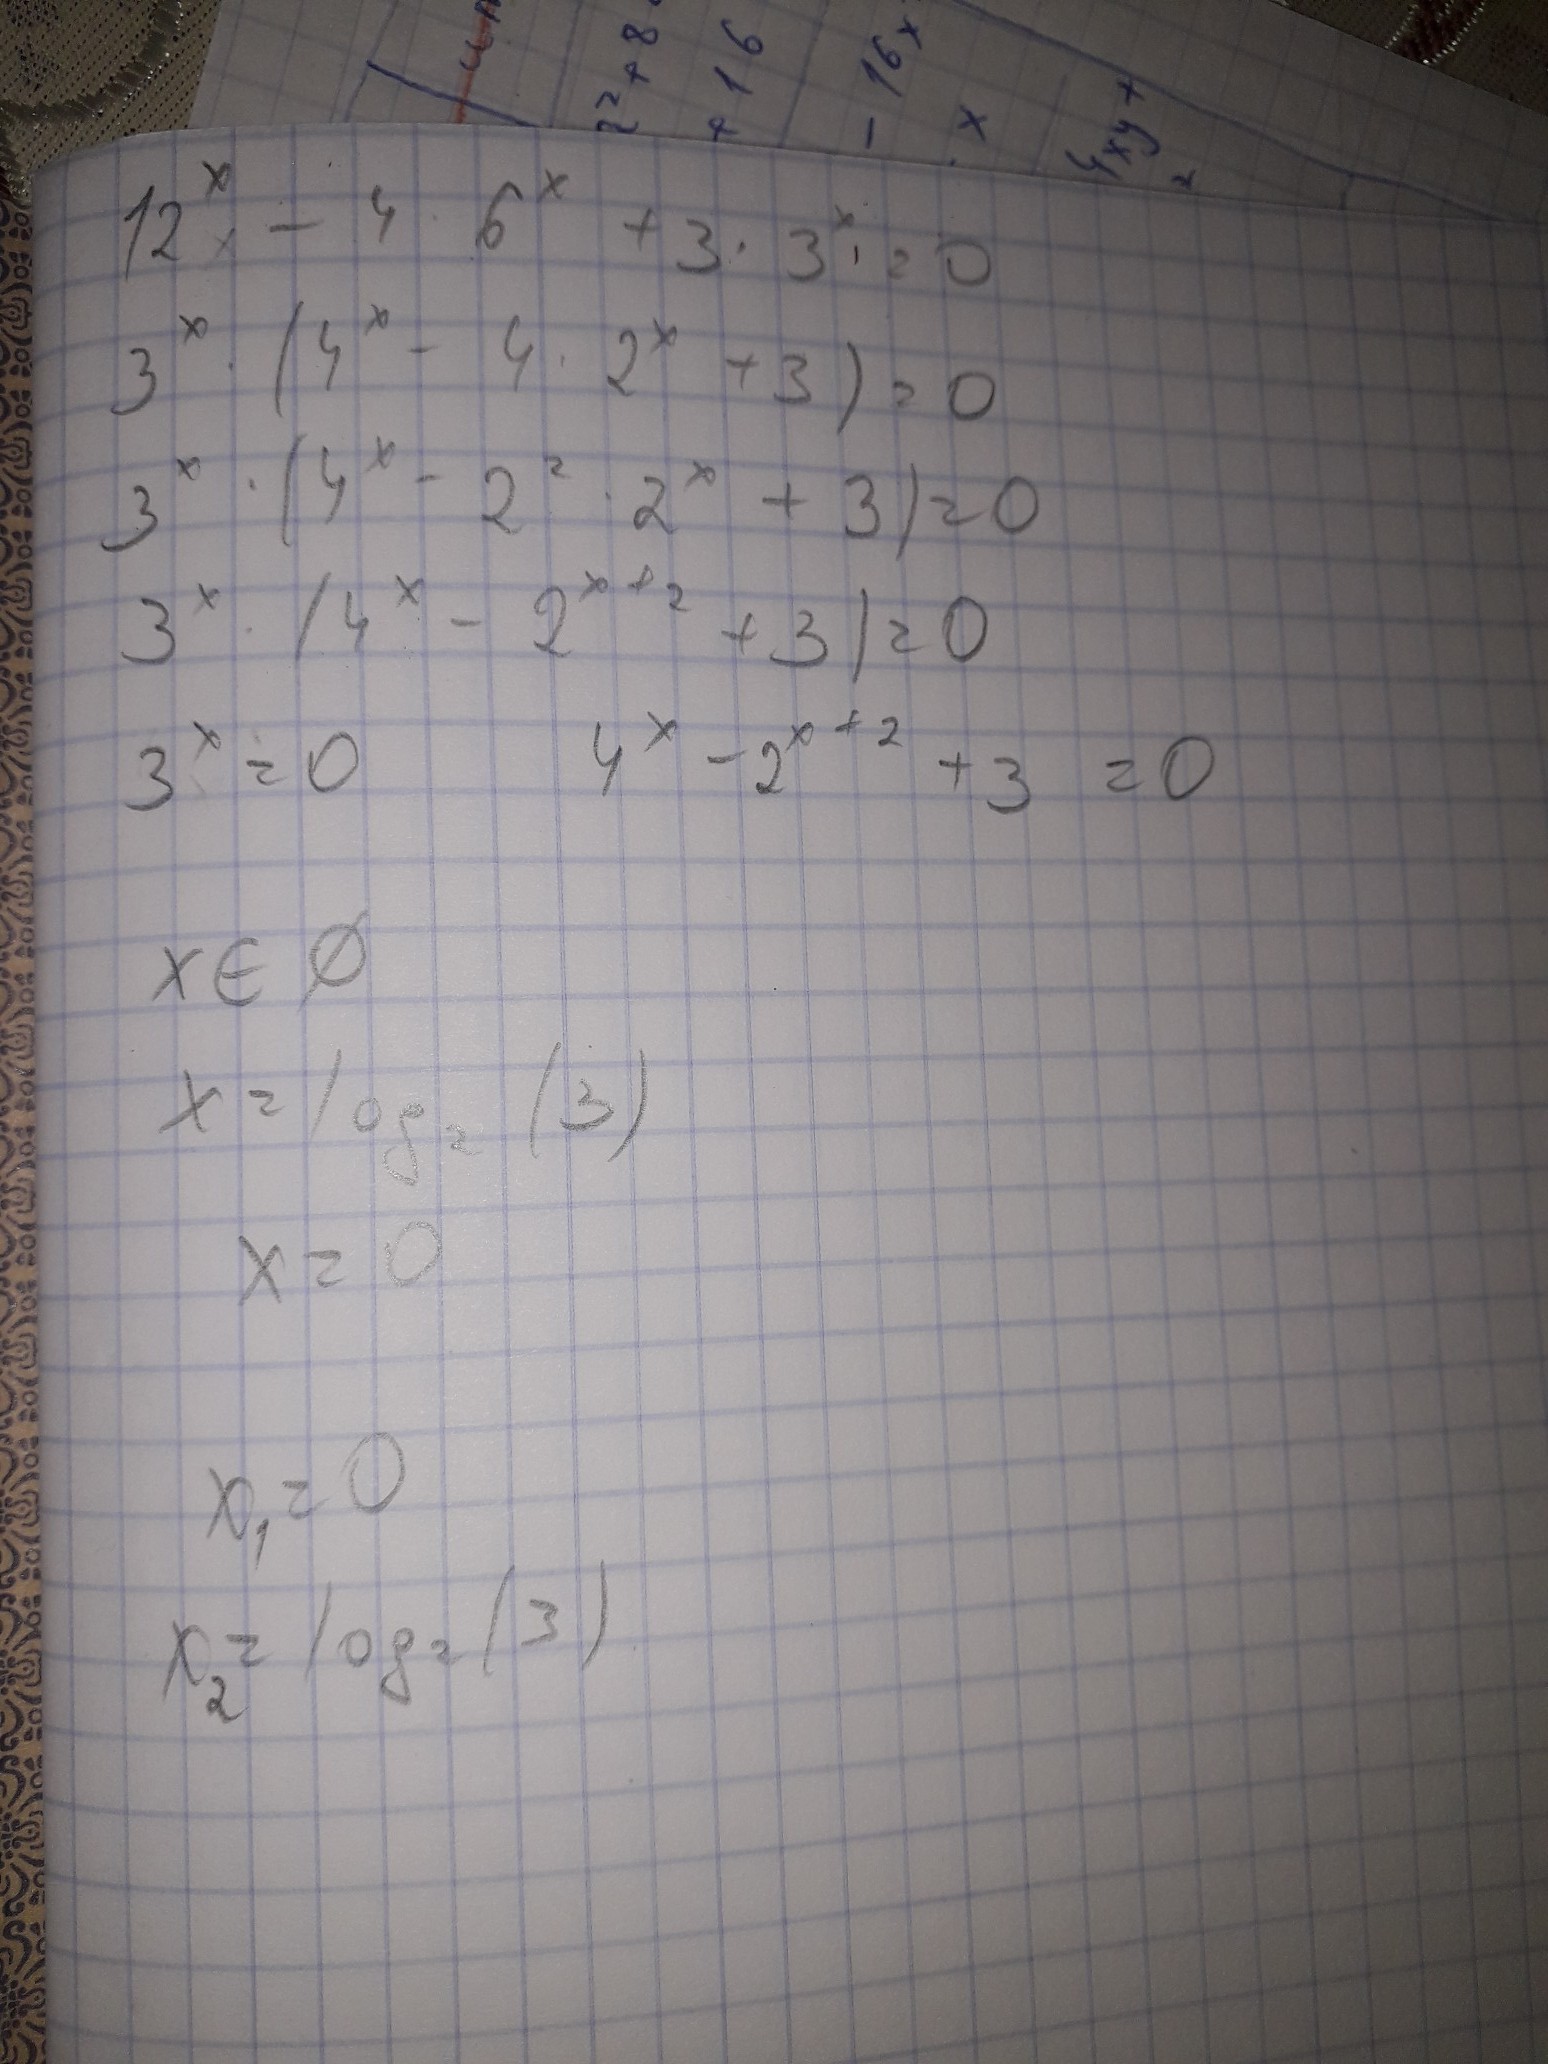 2²+8
+16
-16x
. x
4xy+
12ˣ - 4 6ˣ + 3 · 3ˣ = 0
3ˣ · (4ˣ - 4 · 2ˣ + 3) = 0
3ˣ · (4ˣ - 2² · 2ˣ + 3) = 0
3ˣ · (4ˣ - 2ˣ⁺² + 3) = 0
3ˣ = 0 4ˣ - 2ˣ⁺² + 3 = 0
x ∈ ∅
x = log₂ (3)
x = 0
x₁ = 0
x₂ = log₂ (3)